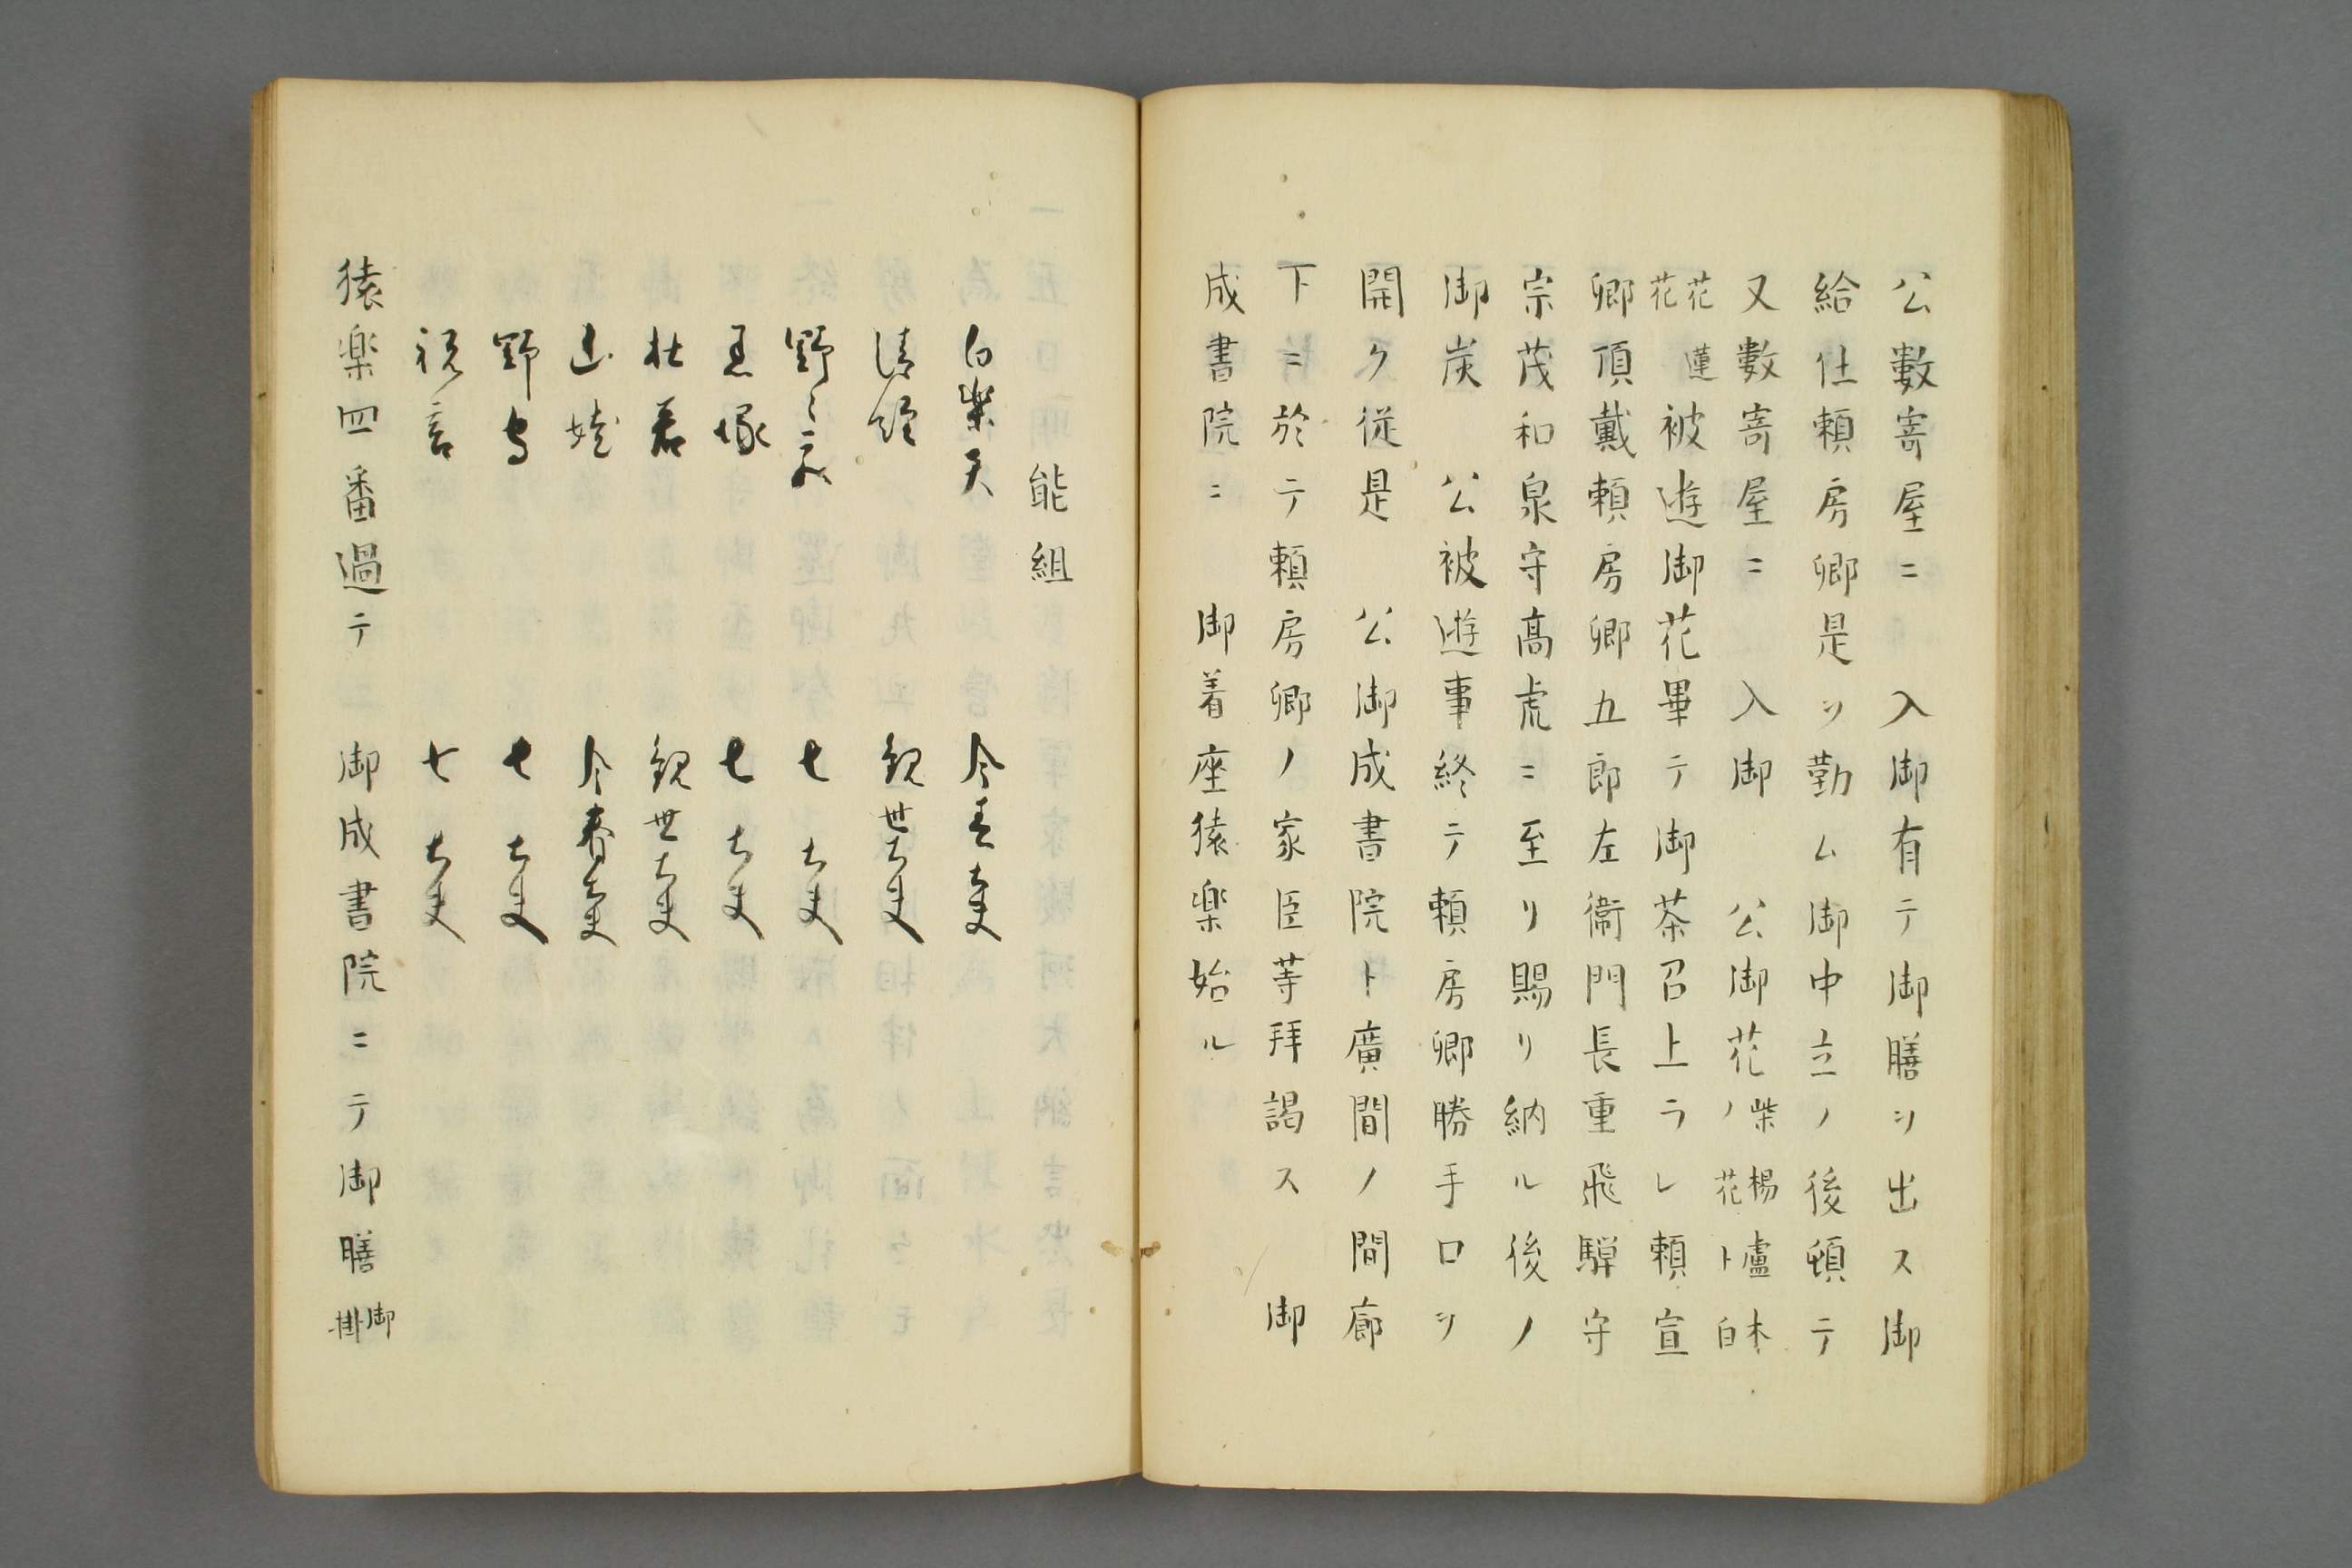 公數寄屋ニ　入御有テ御膳ヲ出ス御
給仕頼房卿是ヲ勤ム御中立ノ後頓テ
又數寄屋ニ　入御　公御花ノ柴楊盧木
花ト白
花蓮
花
被遊御花畢テ御茶召上ラレ頼宣
卿頂戴頼房卿五郎左衞門長重飛騨守
宗茂和泉守髙虎ニ至リ賜リ納ル後ノ
御炭　公被遊事終テ頼房卿勝手口ヲ
開ク従是　公御成書院ト廣間ノ間廊
下ニ於テ頼房卿ノ家臣等拜謁ス　御
成書院ニ　御着座猿楽始ル
能組
白楽天　今春大夫
清經　観世大夫
野々宮　七大夫
黒塚　七大夫
杜若　観世大夫
山姥　今春大夫
野守　七大夫
祝言　七大夫
猿楽四番過テ　御成書院ニテ御膳御
掛